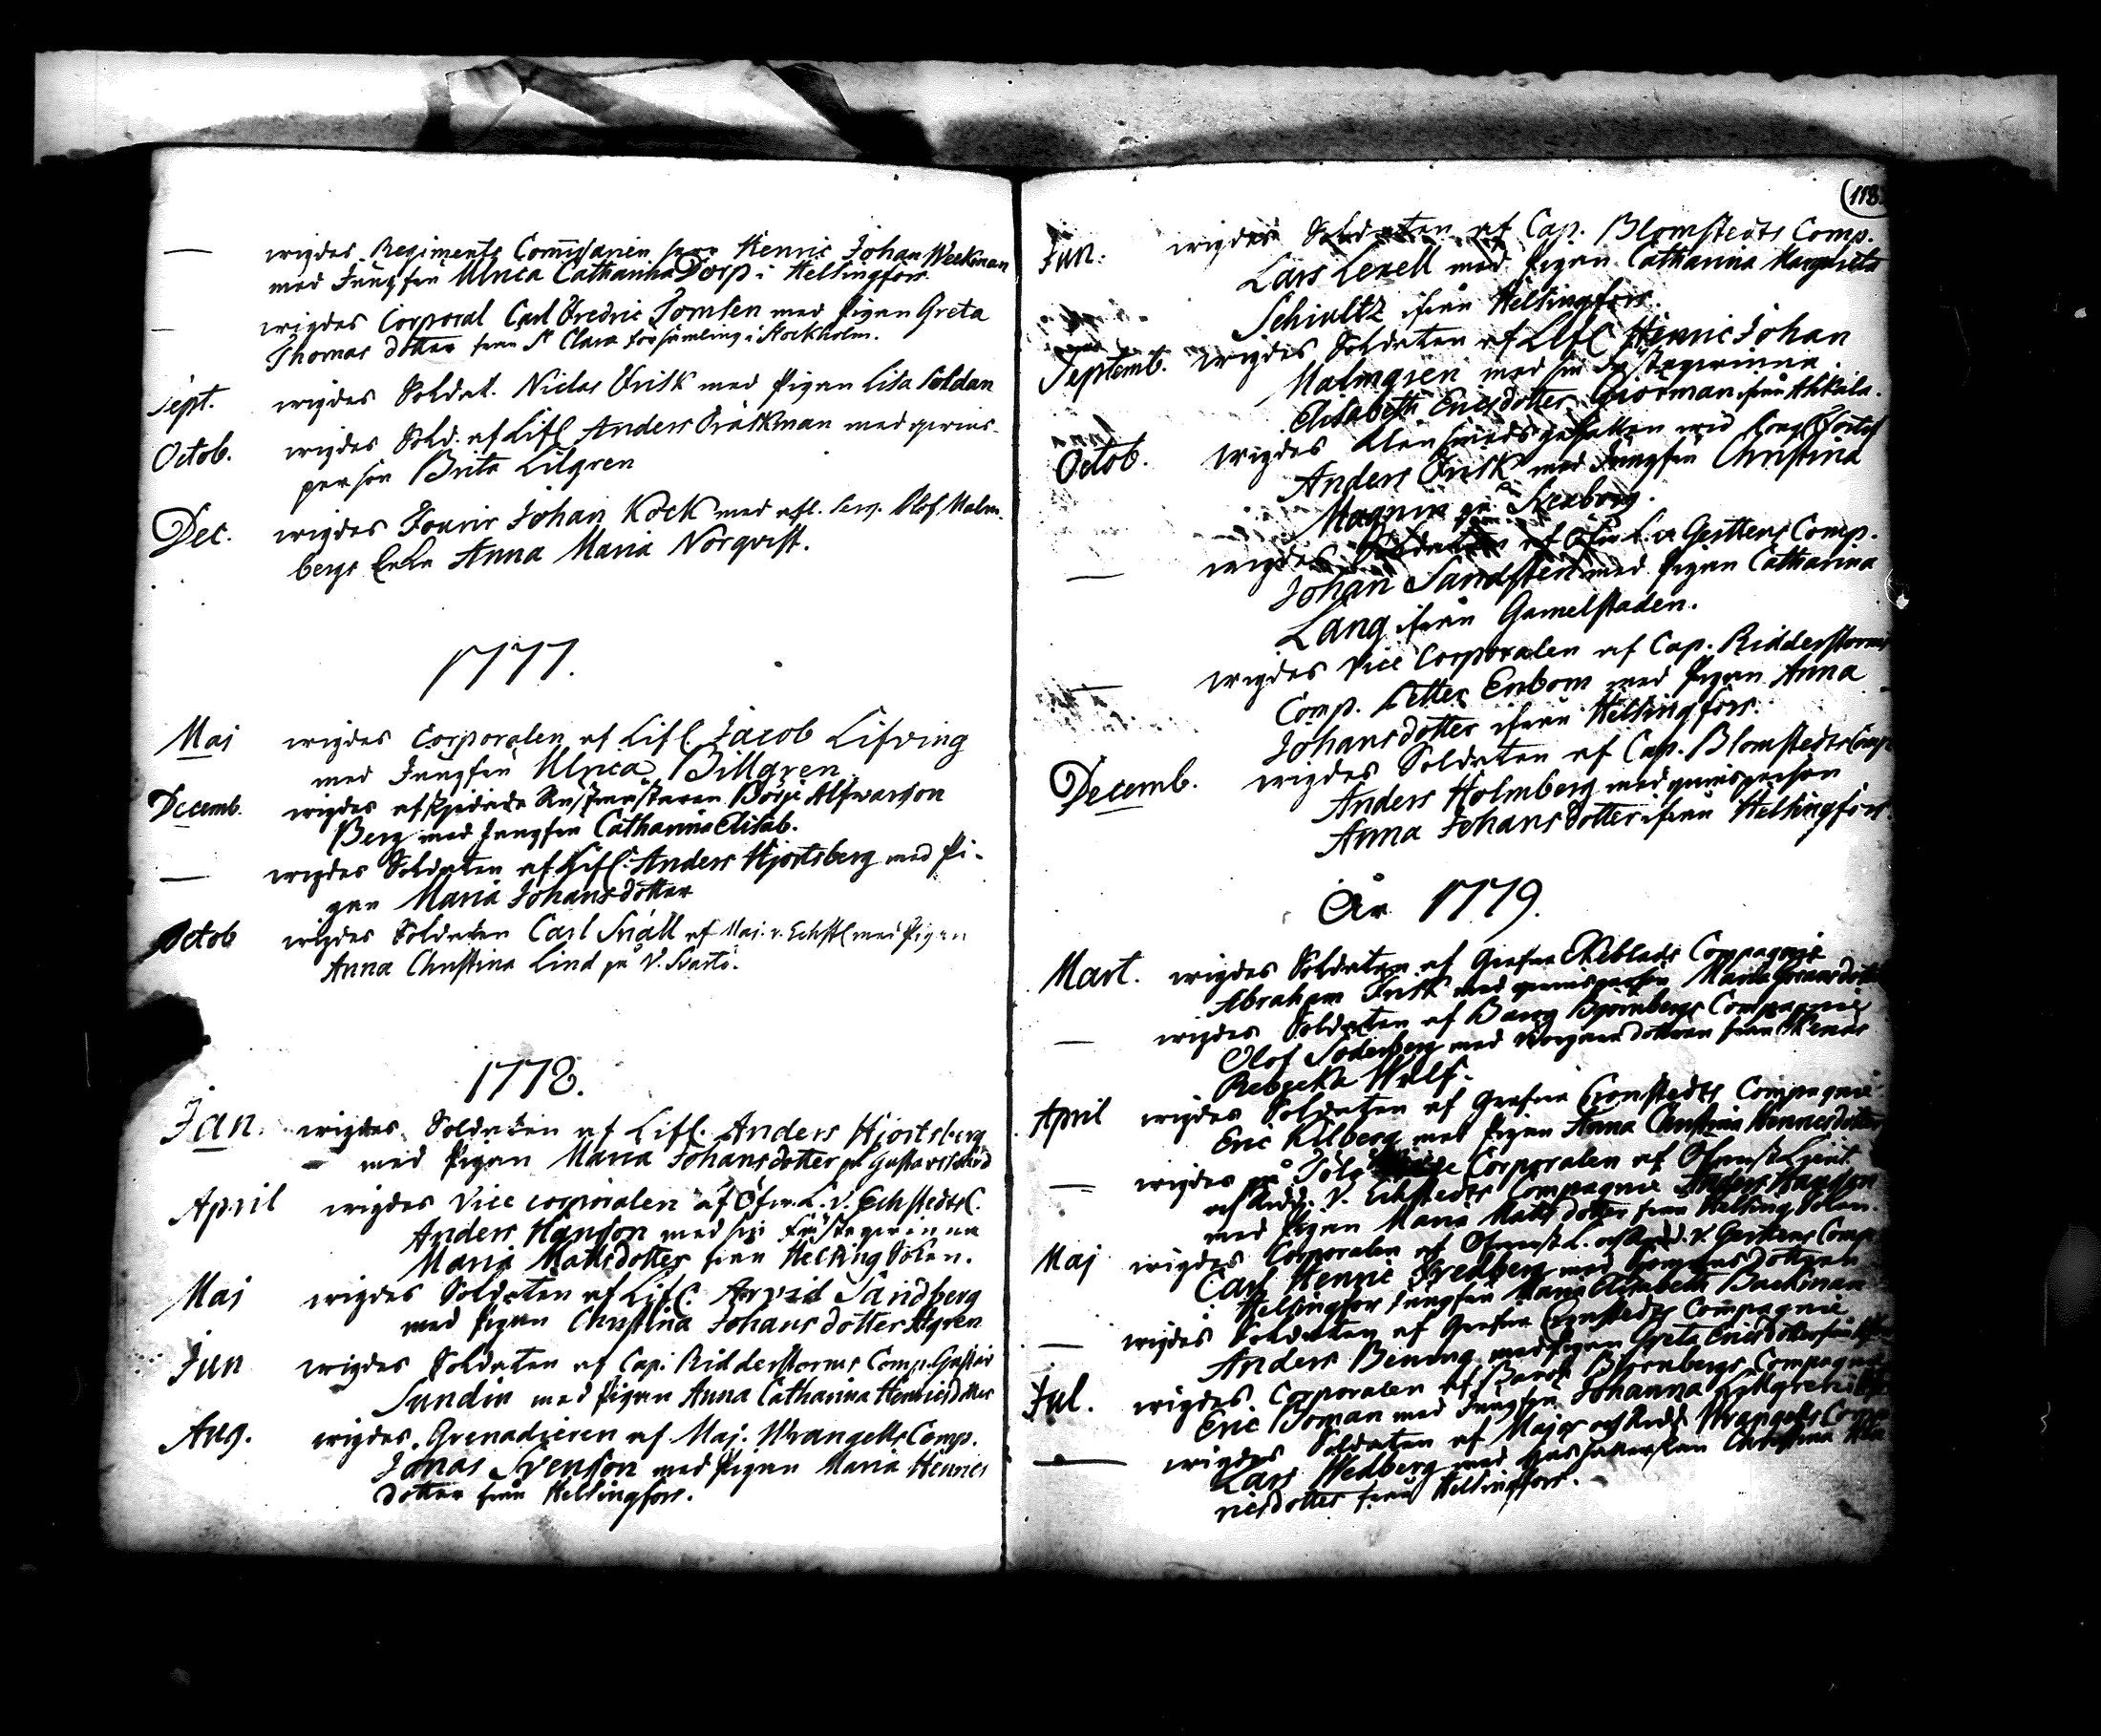 — wigdes Regiments Commissarien herr Henric Johan Weekman
med Jungfru Ulrica Catharina Dorp i Helsingfors.
— wigdes Corporal Carl Fredric Tomsen med Pigan Greta
Thomas dotter från St Clara församling i Stockholm.
Sept. wigdes Soldat. Niclas Frisk med Pigan Lisa Soldan
Octob. wigdes Sold. af Lifc. Anders Fraskman med qwins-
person Brita Lilgren
Dec. wigdes Fourir Johan Kock med afl. Serg. Olof Malm-
bergs Enka Anna Maria Norqvist.
1777.
Maj wigdes Corporalen af Lifc. Jacob Lifving
med Jungfru Ulrica Billgren
Decemb. wigdes afskjedade Rustmästaren Börje Alfwarson
Berg med Jungfru Catharina Elisab.
— wigdes Soldaten af Lifc. Anders Hjortsberg med Pi-
gan Maria Johansdotter
Octob wigdes Soldaten Carl Snäll af Maj. v. Echst C med Pigan
Anna Christina Lind på V. Svartö.
1778.
Jan. wigdes Soldaten af Lifc. Anders Hjortsberg
med Pigan Maria Johansdotter på Gustavssvärd
April wigdes Vice corporalen af Öfw. L. v. Echstedts C.
Anders Hanson med sin Fästeqwinna
Maria Mattsdotter från Helsing Soken.
Maj wigdes Soldaten af Lifc. Arvid Sandberg
med Pigan Christina Johansdotter Algren
Jun wigdes Soldaten af Cap. Ridderstorms Comp. Gustav
Sundin med Pigan Anna Catharina Henricsdotter
Aug. wigdes Grenadieren af Maj. Wrangells Comp.
Jonas Svenson med Pigan Maria Henrics
dotter från Helsingfors.
118.
Jun. wigdes Soldaten af Cap. Blomstedts Comp.
Lars Lexell med Pigan Catharina Margareta
Schiultz ifrån Helsingfors.
Septemb. wigdes Soldaten af Lifc Henric Johan
Malmgren med sin Fästeqwinna
Elisabeth Ericsdotter ifrån
Octob. wigdes Klensmedsgesällen wid Kongl.
Anders Frisk med Jungfru Christina
Magnin på
— wigdes Soldaten af Öfw. L. v. Gerttens Comp.
Johan Sandsten med Pigan Catharina
Lang ifrån Gamelstaden.
— wigdes Vice Corporalen af Cap. Ridderstorms
Comp. Petter Enbom med Pigan Anna
Johansdotter ifrån Helsingfors.
Decemb. wigdes Soldaten af Cap. Blomstedts Comp.
Anders Holmberg med qwinsperson
Anna Johansdotter ifrån Helsingfors.
År 1779.
Mart. wigdes Soldaten af Grefwe Ekeblads Compagnie
Abraham Frisk med qwinsperson Maria
— wigdes Soldaten af Baron Björnbergs Compagnie
Olof Söderberg med dottren från
Rebecka Wulf.
April wigdes Soldaten af Grefwe Cronstedts Compagnie
Eric Kilberg med Pigan Anna Christina Henricsdotter
— wigdes på Corporalen af Öfwerst Lieut.
och Ridd. v. Echstedts Compagnie Anders Hanson
med Pigan Maria Matts dotter från Helsing Soken.
Maj wigdes Corporalen af Öfwerst L. och Ridd. v. Gerttens Comp
Carl Henric Fredberg med dottren
i Helsingfors Jungfru Maria Elisabeth Backman
— wigdes Soldaten af Grefwe Cronstedts Compagnie
Anders Bening med Pigan Greta Ericsdotter från
Jul. wigdes Corporalen af Baron Björnbergs Compagnie
Eric Boman med Jungfru Johanna
— wigdes Soldaten af Major och Ridd. Wrangells Comp
Lars Wedberg med Christina Hen
ricsdotter från Helsingfors.